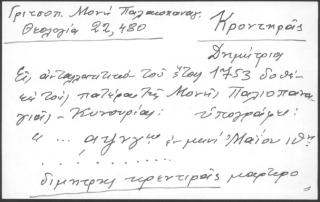 Γριτσοπ. Μονή Παλαιοπαναγ.
Θεολογία 22, 480
Κροντηρᾶς
Δημήτριος
Εἰς ἀνταλλακτικὸ τοῦ ἔτους 1753 δοθὲν
τοὺς πατέρας τῆς Μονῆς Παλιοπανα
γιᾶς - Κυνουρίας: ὑπογράφει:
"... ἐν μηνὶ Μαΐου ιθῃ
. . . . . . . . .
διμητρης κρεντιρᾶς μαρτιρο